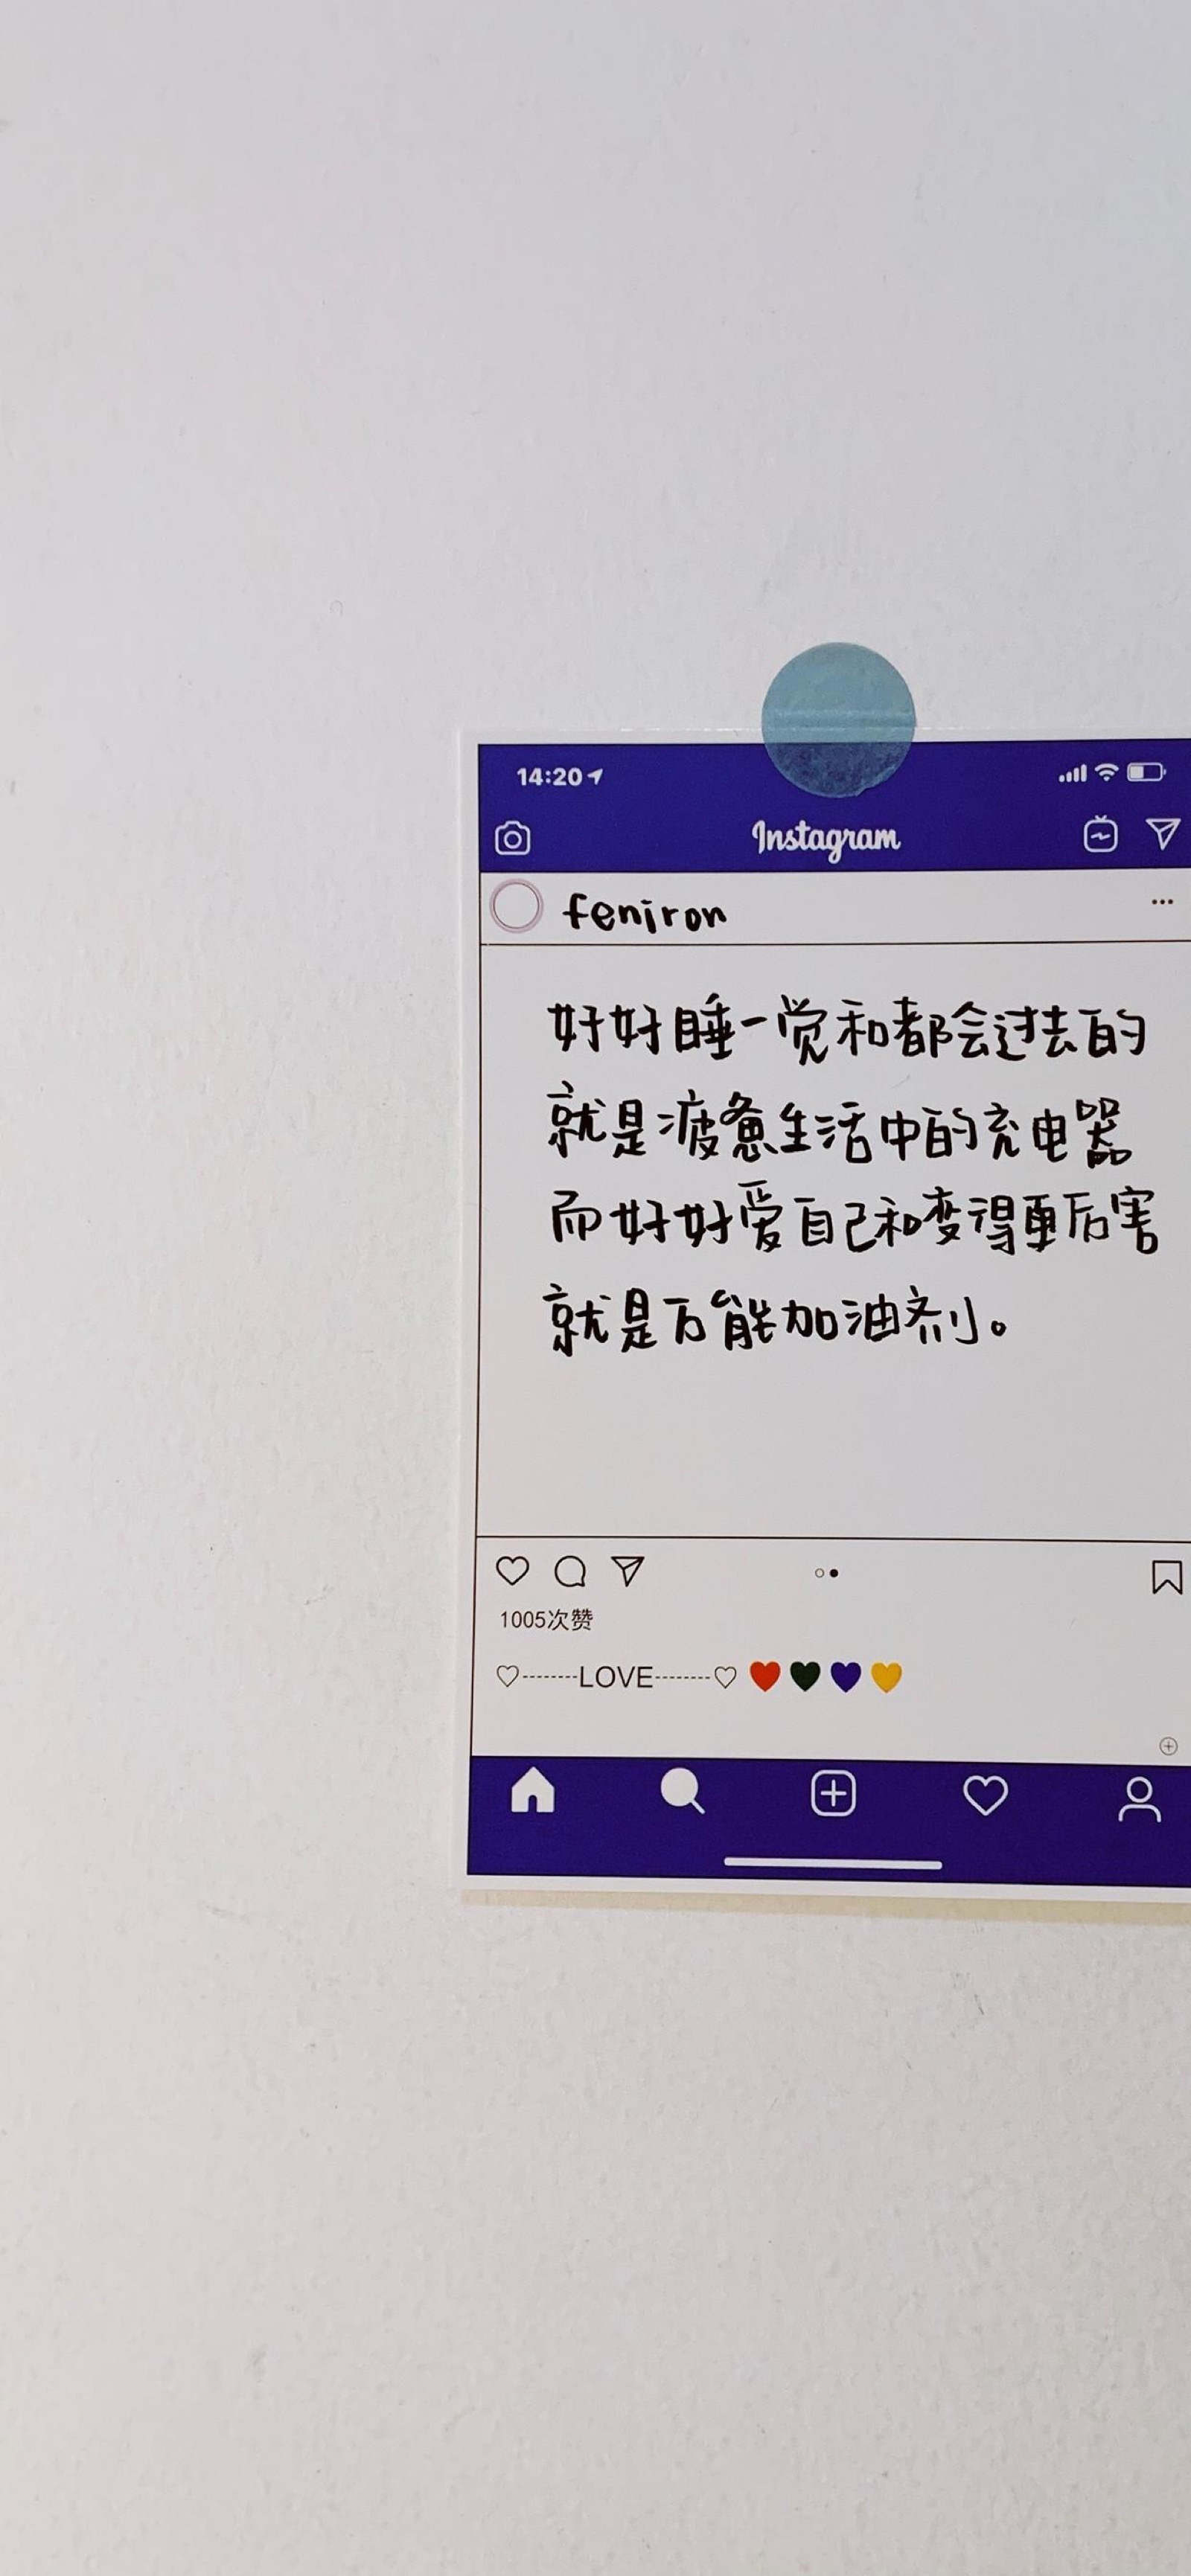 14:20
Instagram
feniron
好好睡一觉和都会过去的
就是疲惫生活中的充电器
而好好爱自己和变得更厉害
就是万能加油剂。
1005次赞
♡--------LOVE--------♡ ❤️🖤💙💛